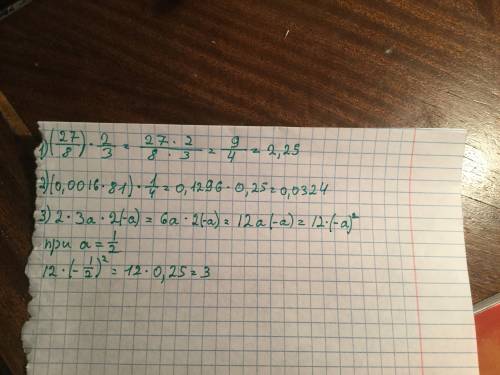 1) (27/8) · 2/3 = 27 · 2 / 8 · 3 = 9/4 = 2,25
2) (0,0016 · 81) · 1/4 = 0,1296 · 0,25 = 0,0324
3) 2 · 3a · 2(-a) = 6a · 2(-a) = 12a(-a) = 12 · (-a)²
при a = 1/2
12 · (-1/2)² = 12 · 0,25 = 3